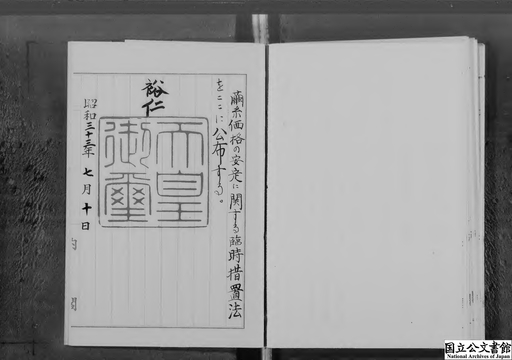 繭糸価格の安定に関する臨時措置法
をここに公布する。
裕仁
天皇
御璽
昭和三十三年七月十日
国立公文書館
National Archives of Japan